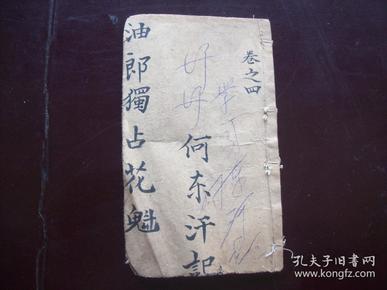 卷之四
好好
何东汗記
油郎獨占花魁
孔夫子旧书网